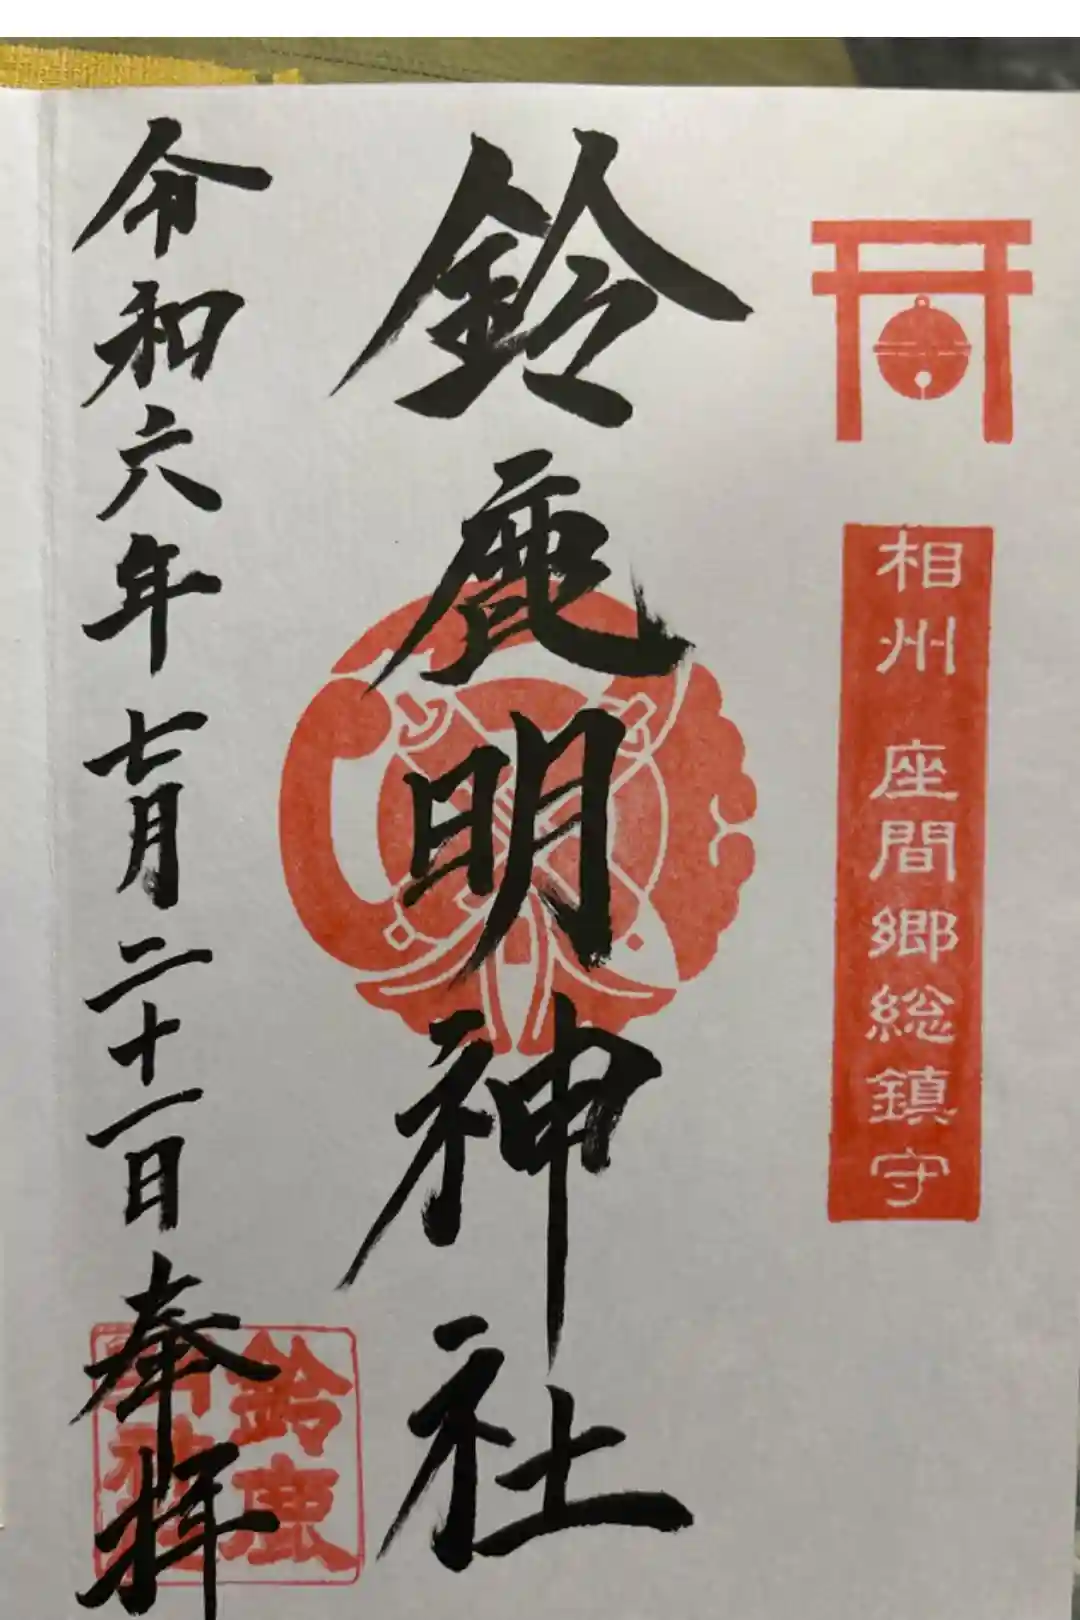 相州 座間郷総鎮守
鈴鹿明神社
令和六年七月二十一日 奉拝
鈴鹿